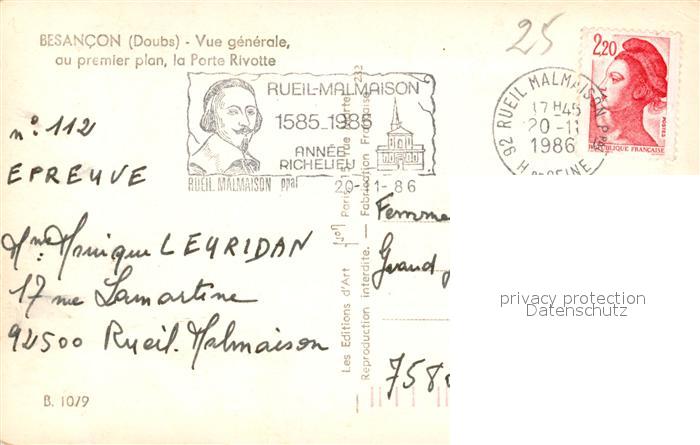 BESANÇON (Doubs) - Vue générale,
au premier plan, la Porte Rivotte
25
2,20
POSTES
REPUBLIQUE FRANÇAISE
RUEIL-MALMAISON
1585_1985
ANNÉE
RICHELIEU
RUEIL MALMAISON ppal
20-11-86
92 RUEIL MALMAISON P.pal
17 H 45
20-11
1986
Hts DE SEINE
n° 112
EPREUVE
Mme Monique LEYRIDAN
17 rue Lamartine
92500 Rueil-Malmaison
B. 1079
Les Editions d'Art
Paris
Reproduction interdite. — Fabrication Française 232
Femme
Grand
758
privacy protection
Datenschutz